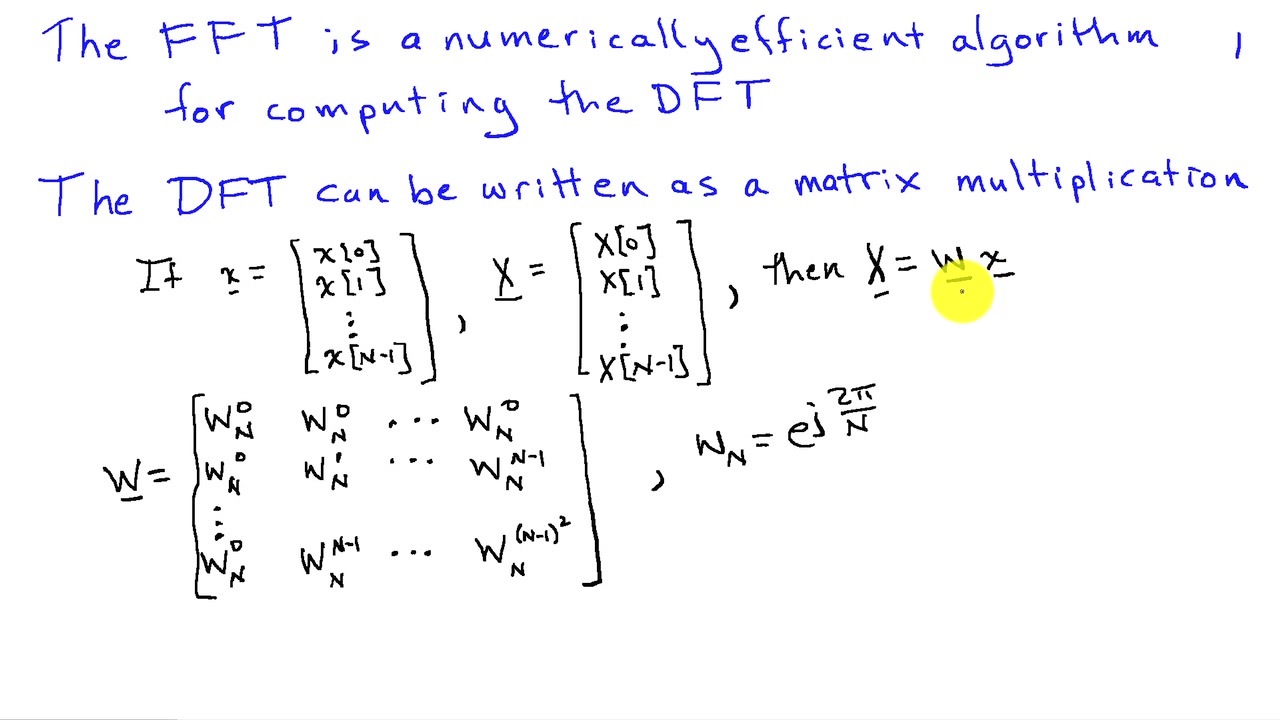 The FFT is a numerically efficient algorithm ,
for computing the DFT
The DFT can be written as a matrix multiplication
If x = [ x[0] x[1] ⋮ x[N-1] ] , X = [ X[0] X[1] ⋮ X[N-1] ] , then X = W x
W = [ W_N^0 W_N^0 ... W_N^0
W_N^0 W_N^1 ... W_N^{N-1}
⋮
W_N^0 W_N^{N-1} ... W_N^{(N-1)^2} ] , W_N = e^{j 2π/N}